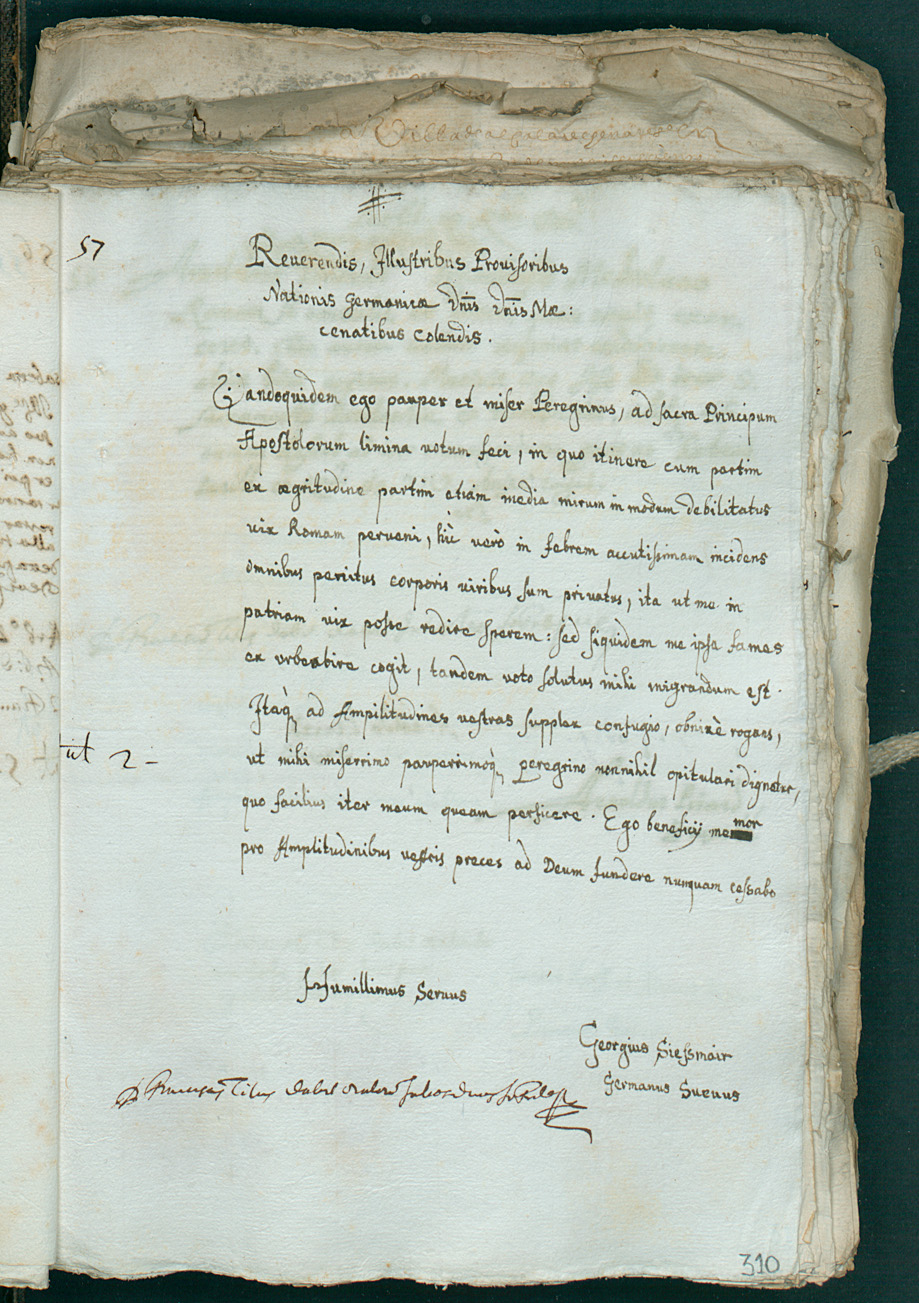 57
Reuerendis, Illustribus Prouisoribus
Nationis Germanicæ Dn̄is Dn̄is Mæ:
cenatibus Colendis.
Qandoquidem ego pauper et miser Peregrinus, ad sacra Principum
Apostolorum limina uotum feci, in quo itinere cum partim
ex ægritudine partim etiam inedia mirum in modum debilitatus
uix Romam perueni, hic verò in febrem accutissimam incidens
omnibus penitus corporis uiribus sum priuatus, ita ut me in
patriam uix posse redire sperem: sed siquidem me ipsa fames
ex vrbe abire cogit, tandem voto solutus mihi migrandum est.
Itaq ad Ampilitudines uestras supplex confugio, obnixè rogans,
ut 2 -
vt mihi miserrimo pauperrimoq peregrino nonnihil opitulari dignetur,
quo facilius iter meum queam perficere. Ego beneficij memor
pro Amplitudinibus vestris preces ad Deum fundere nunquam cessabo
Humillimus Seruus
Georgius Siessmair
Germanus Sueuus
310